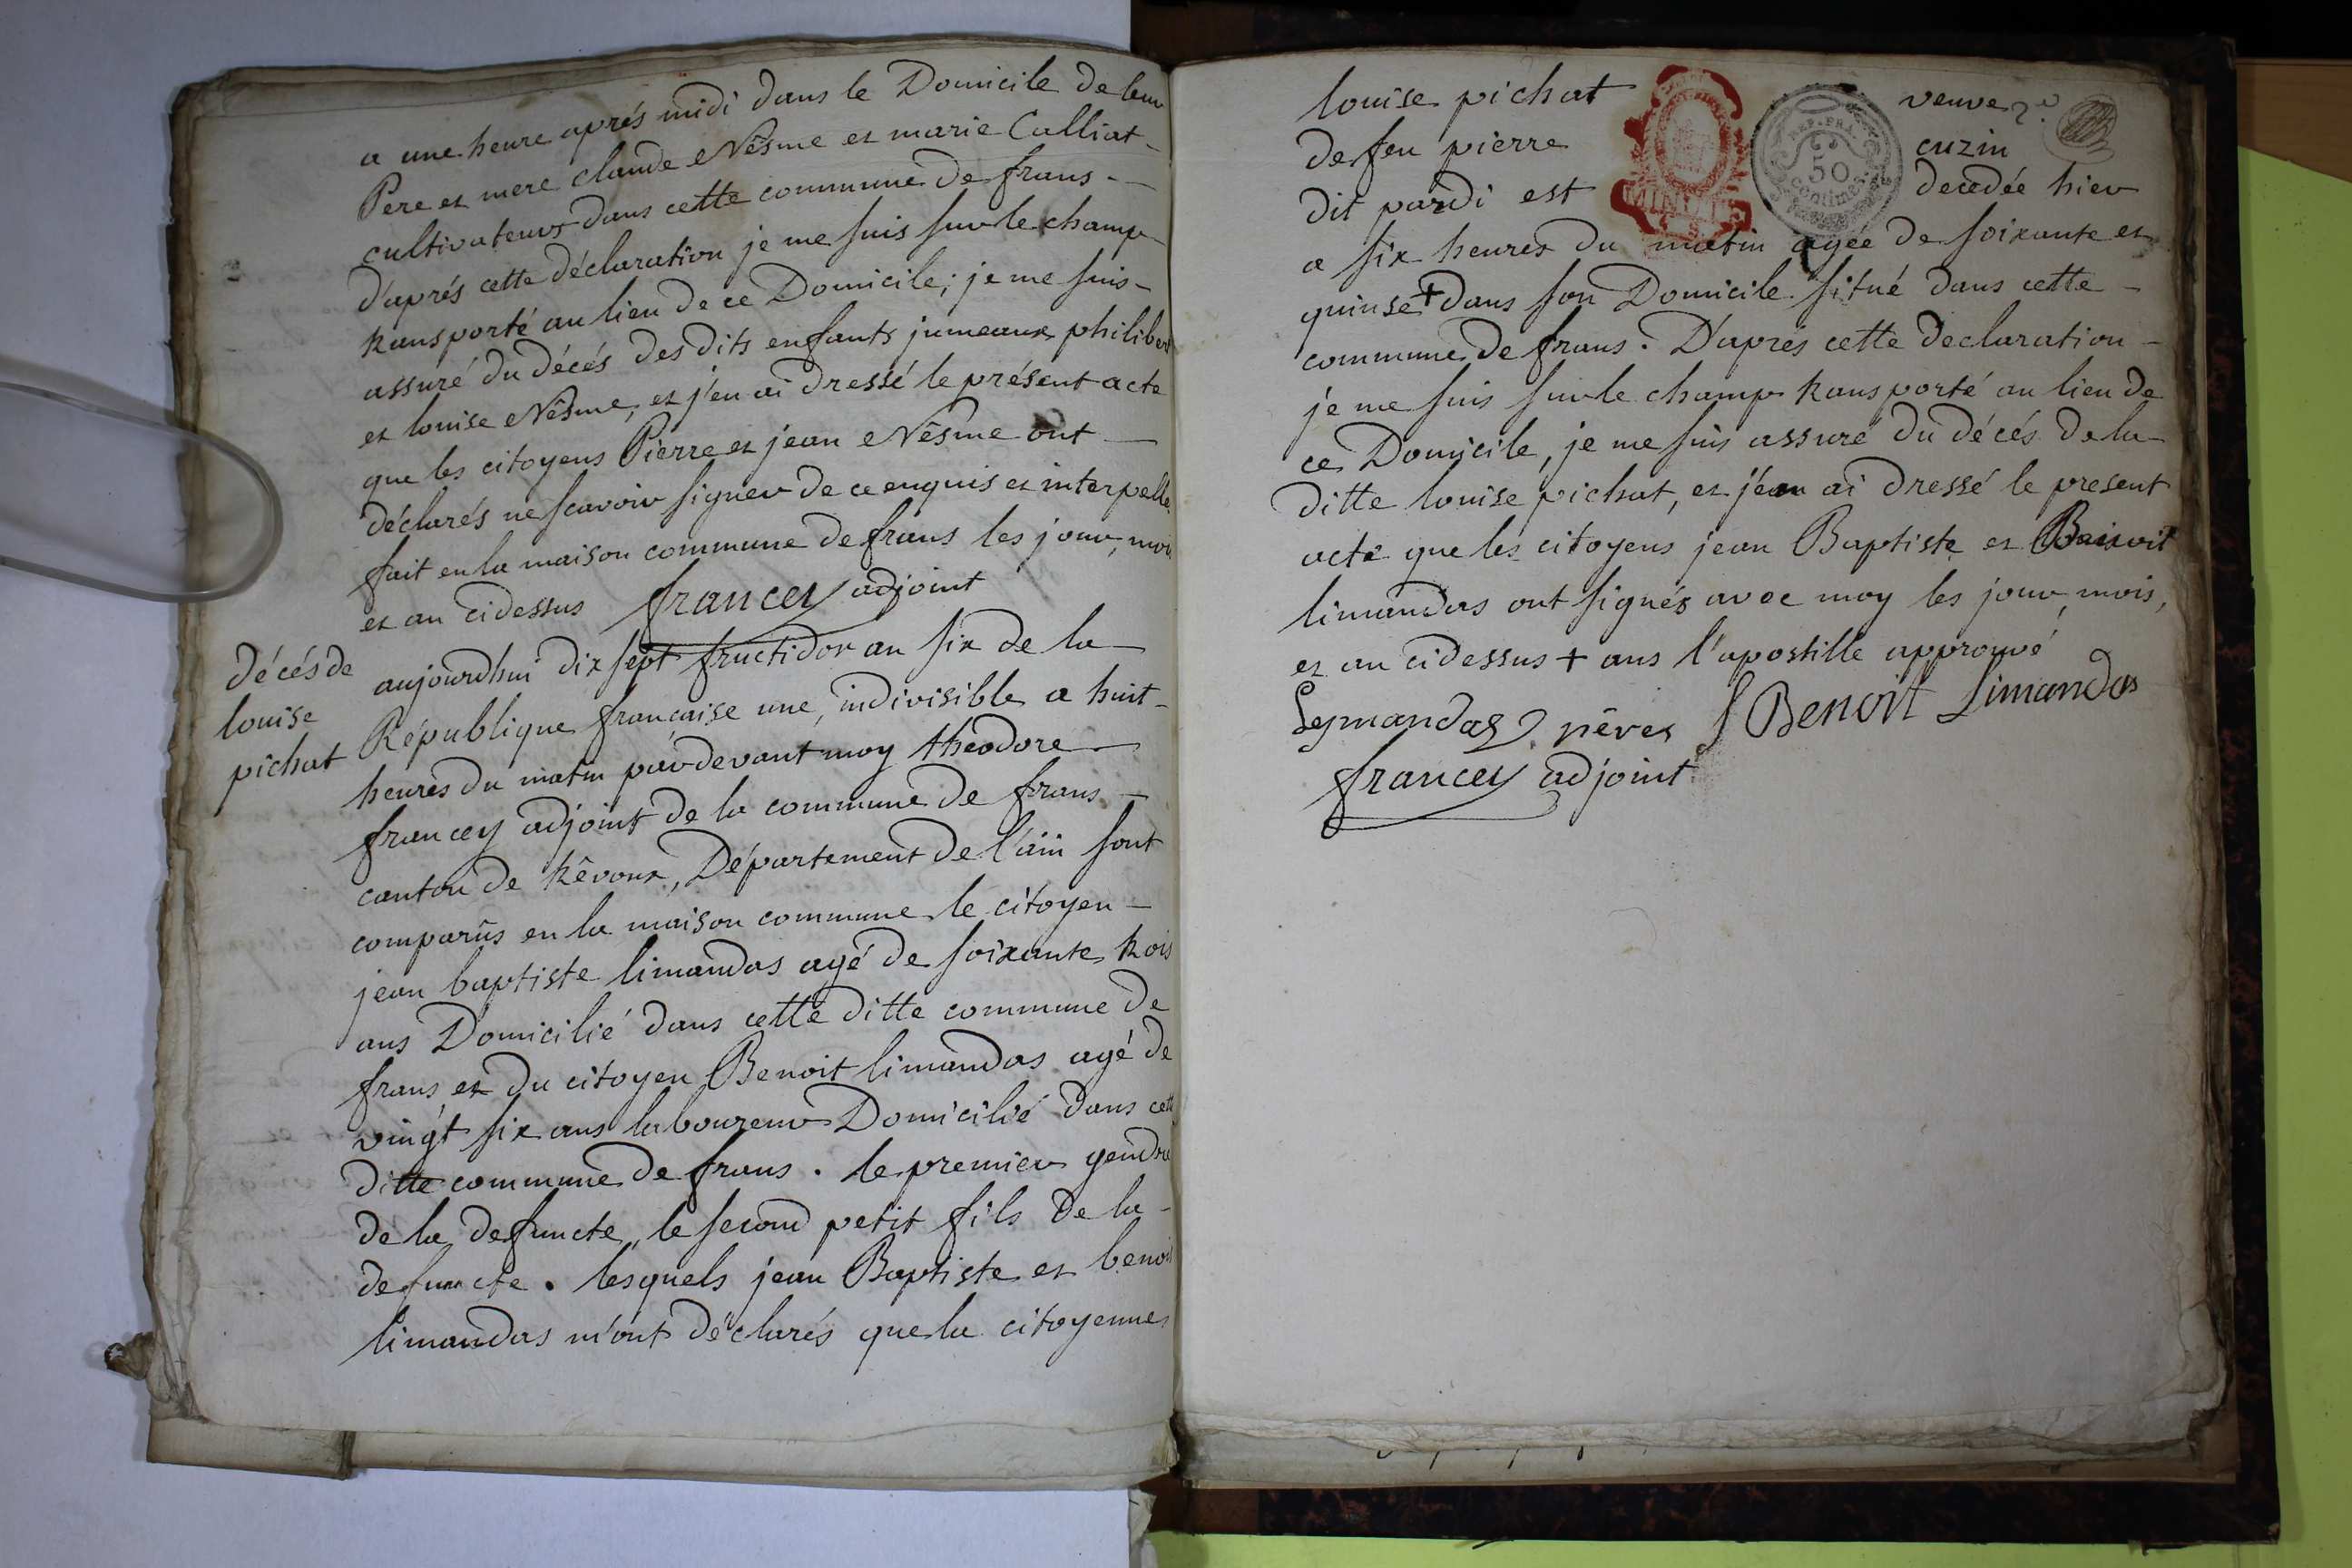 a une heure aprés midi dans le Domicile de leur
Pere et mere claude Nêsme et marie Calliat
cultivateurs dans cette commune de frans
d'aprés cette déclaration je me suis sur le champ
transporté au lieu de ce Domicile; je me suis
assuré du décés des dits enfants jumeaux philibert
et louise Nêsme, et j'en ai dressé le présent acte
que les citoyens Pierre et jean Nêsme ont
déclarés ne scavoir signer de ce enquis et interpelle
fait en la maison commune de frans les jour, mois
et an cidessus francey adjoint
décés de
louise
pichat
aujourdhui dix sept fructidor an six de la
République francaise une, indivisible a huit
heures du matin pardevant moy théodore
francey adjoint de la commune de frans
canton de trêvoux, Département de l'ain sont
comparûs en la maison commune le citoyen
jean baptiste limandas agé de soixante trois
ans Domicilié dans cette ditte commune de
frans et du citoyen Benoit limandas agé de
vingt six ans laboureur Domicilié dans cette
ditte commune de frans. le premier gendre
de la defuncte, le second petit fils de la
defuncte. lesquels jean Baptiste et benoit
limandas m'ont déclarés que la citoyenne
louise pichat veuve
de feu pierre cuzin
dit pardi est decedée hier
REP. FRA.
50
centimes
MINUTE
a six heures du matin agée de soixante et
quinse + dans son Domicile situé dans cette
commune de frans. D'aprés cette declaration
je me suis sur le champ transporté au lieu de
ce Domicile, je me suis assuré du décés de la
ditte louise pichat, et j'en ai dressé le present
acte que les citoyens jean Baptiste et Benoit
limandas ont signés avec moy les jour, mois,
et an cidessus + ans l'apostille approuvé
Lymandas pêres Benoit Limandas
francey adjoint